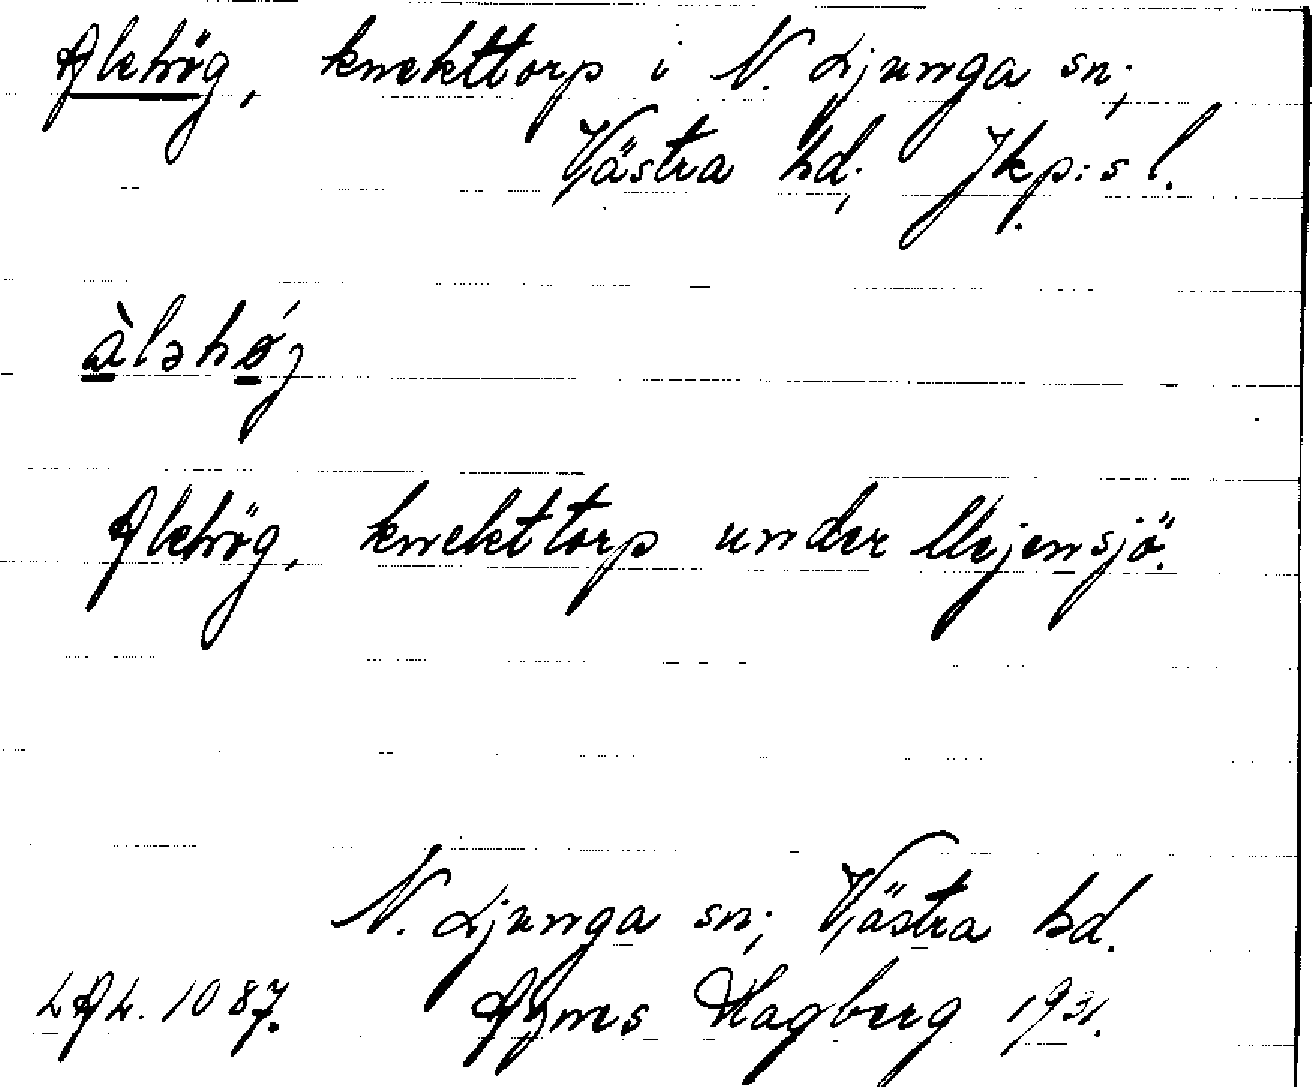 Alehög, knekttorp i N. Ljunga sn;
Västra hd; Jkp:s l.
àləhǿj
Alehög, knekttorp under Mejensjö.
N. Ljunga sn; Västra hd.
LAL. 1087. Agnes Hagberg 1931.